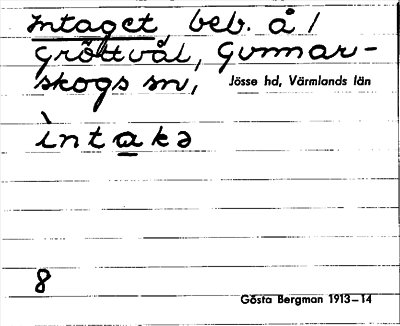 Intaget, beb. å /
Gröttvål, Gunnar-
skogs sn, Jösse hd, Värmlands län
ìntakə
8
Gösta Bergman 1913–14